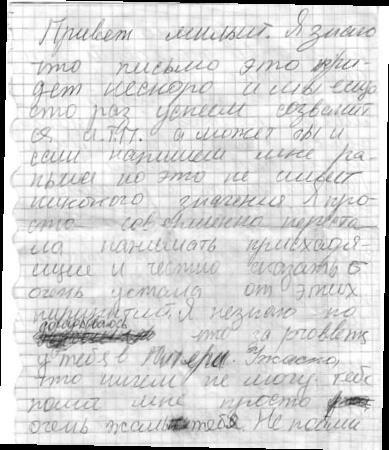 Привет милый. Я знаю
что письмо это при-
дет нескоро и мы еще
сто раз успеем созвонит
ся и т.п. а может ты и
сам напишеш мне ра-
ньше но это не имеит
никокого значения Я про-
сто совершенно переста-
ла понимать происходя-
щие и честно сказать
очень устала от этих
Я незнаю но
догадываюсь
что за
у тебя в Питере. Ужасно,
что ничем не могу тебе
помоч мне просто
очень жаль тебя. Не пойми